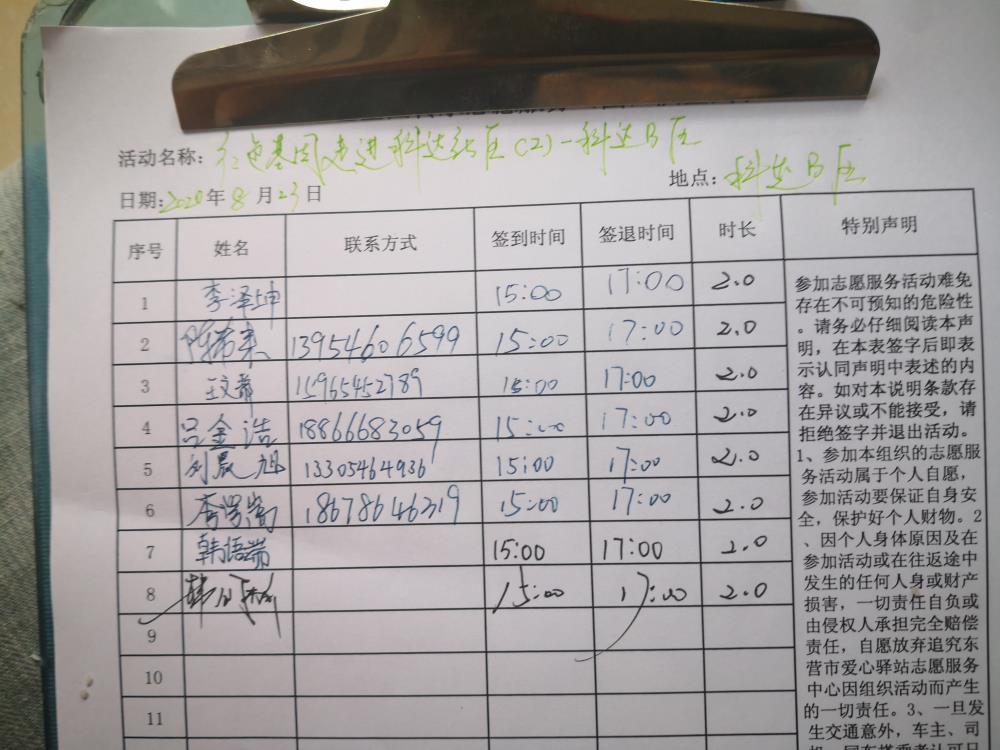 活动名称：红色基因走进科达社区(2)一科达B区
日期:2020年8月23日 地点：科达B区
序号 姓名 联系方式 签到时间 签退时间 时长 特别声明
1 李泽坤 15:00 17:00 2.0
2 陈希来 13954606599 15:00 17:00 2.0
3 15965452789 15:00 17:00 2.0
4 吕金浩 18866683059 15:00 17:00 2.0
5 刘晨旭 13305464936 15:00 17:00 2.0
6 18678646319 15:00 17:00 2.0
7 韩语端 15:00 17:00 2.0
8 15:00 17:00 2.0
9
10
11
参加志愿服务活动难免
存在不可预知的危险性
。请务必仔细阅读本声
明，在本表签字后即表
示认同声明中表述的内
容。如对本说明条款存
在异议或不能接受，请
拒绝签字并退出活动。
1、参加本组织的志愿服
务活动属于个人自愿，
参加活动要保证自身安
全，保护好个人财物。2
、因个人身体原因及在
参加活动或在往返途中
发生的任何人身或财产
损害，一切责任自负或
由侵权人承担完全赔偿
责任，自愿放弃追究东
营市爱心驿站志愿服务
中心因组织活动而产生
的一切责任。3、一旦发
生交通意外，车主、司